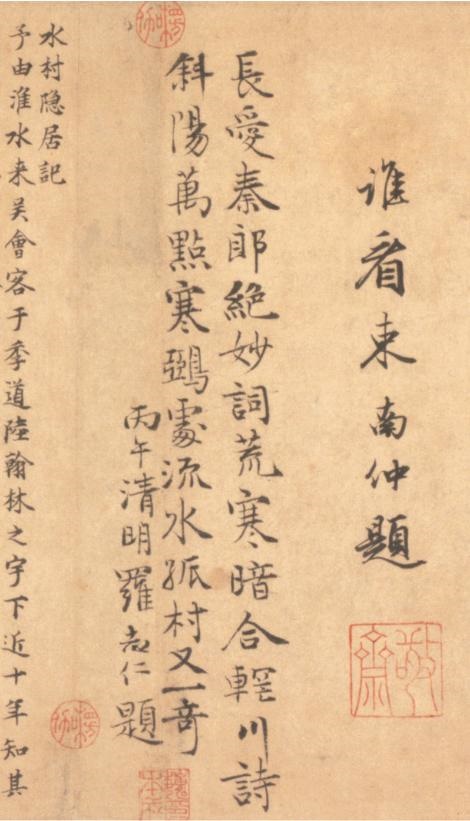 谁看束南仲題
敬齋
長愛秦郎絶妙詞荒寒暗合輞川詩
斜陽萬點寒鵶處流水孤村又一奇
丙午清明羅志仁題
水村隐居記
予由淮水来吴會客于季道陸翰林之宇下近十年知其